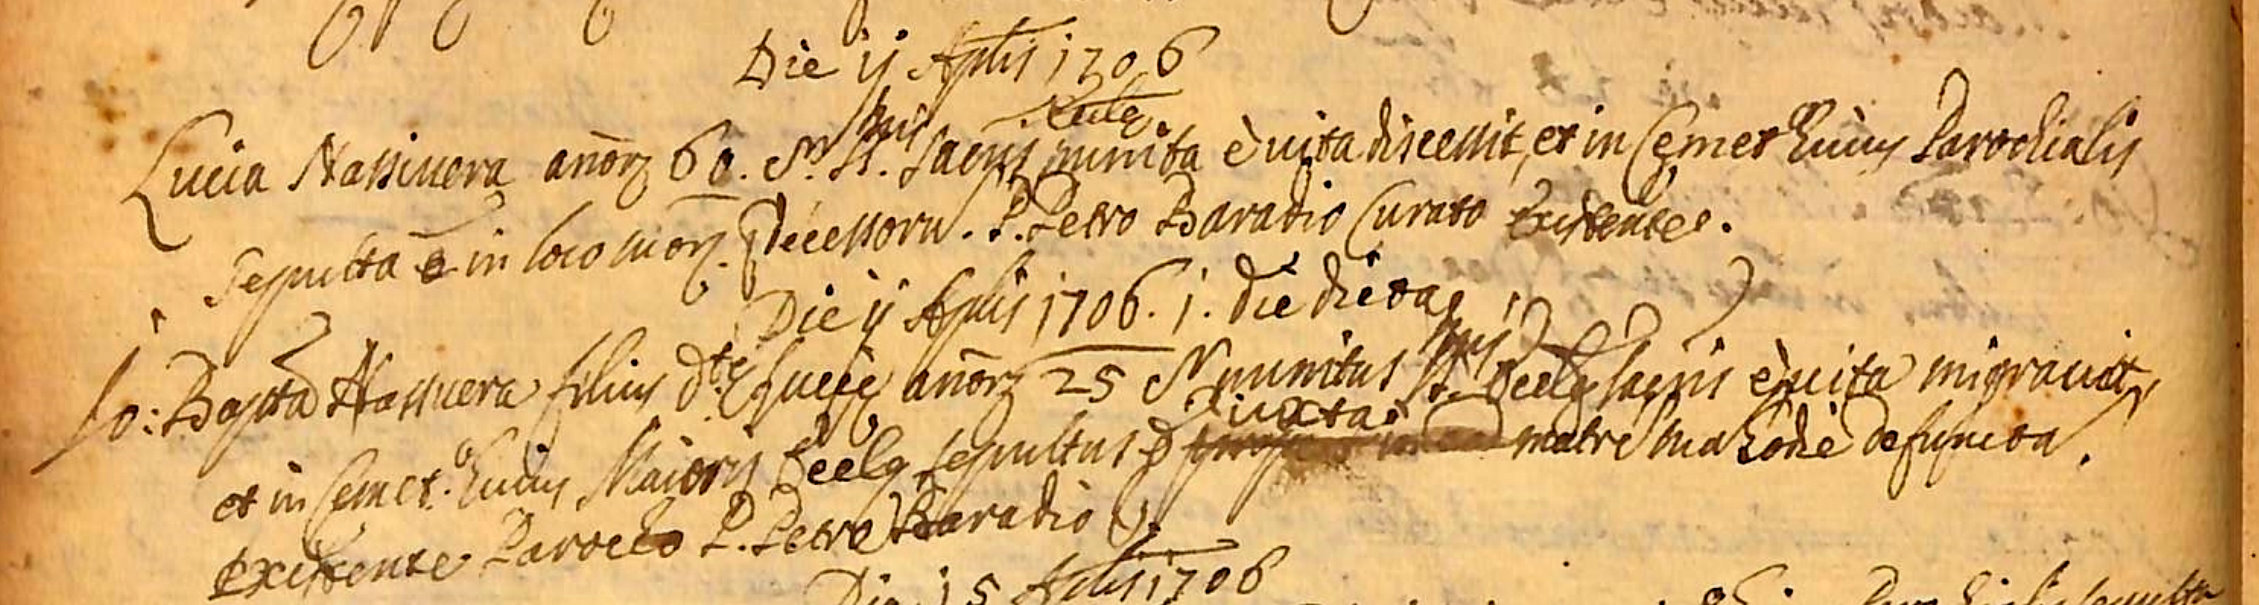 Die ij Aplis 1706
Lucia Nassivera anōrz 60. Sm̄ St. Sacris munita è vita discessit, et in Cemet.o huius Parochialis
Eccle
sepulta ē in loco suorz Decessoru. P. Petro Baradio Curato Existente.
Die ij Aplis 1706. j. die dicta
Jo: Bapta Nassivera filius dte Lucię anōrz 25 munitus Eccłę sacris è vita migravit,
et in Cemet.o huius Maioris Eccłę sepultus ē iuxta matre sua hodie defuncta.
existente Parocho P. Petro Baradio
Die 15 Aplis 1706